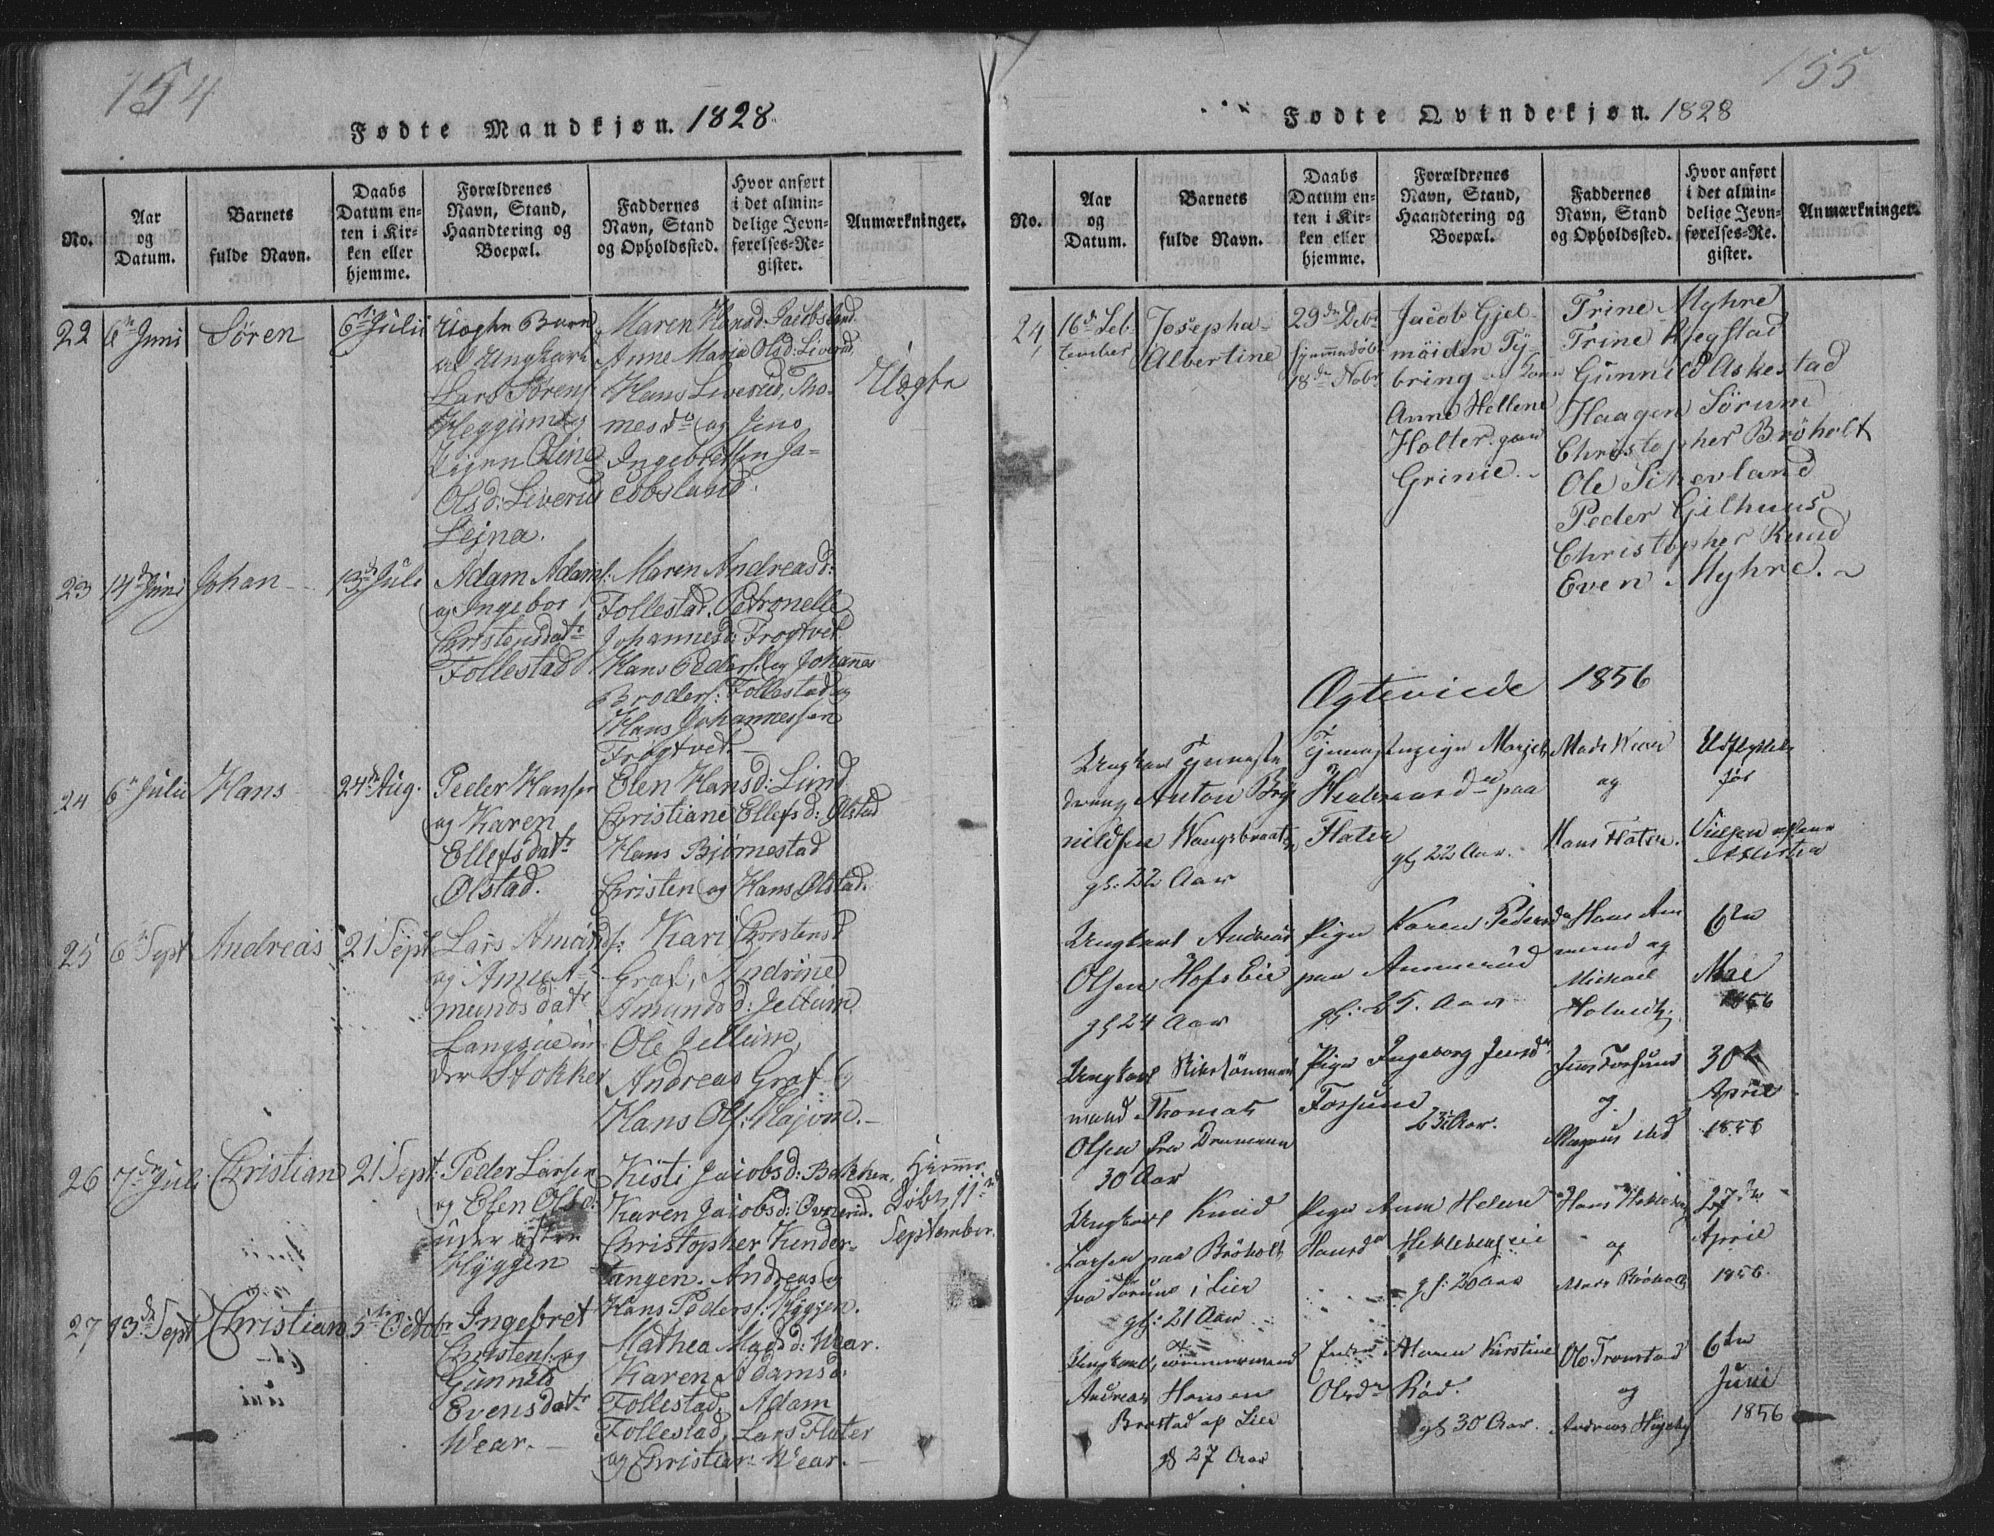 154
Fødte Mandkjøn. 1828.
No.
Aar og Datum.
Barnets fulde Navn.
Daabs Datum enten i Kirken eller hjemme.
Forældrenes Navn, Stand, Haandtering og Boepæl.
Faddernes Navn, Stand og Opholdssted.
Hvor anført i det almindelige Jevnførelses-Register.
Anmærkninger.
22 6 Juni Sören 6 Julii
Uægte Barn
af Ungkarl
Lars Sörens
Heggum og
Pigen Oline
Olsd: Liverud
Lejna.
Maren Hansd: Jacobsland
Anne Maria Olsd: Liverud,
Hans Liverud, Tho-
mes do og Jens
Ingebretsen Ja-
cobsland.
Uægte
23 14d Juni Johan 13d Juli
Adam Adams:
og Ingebor
Christensdatr
Follestad
Maren Andreasd:
Follestad. Petronelle
Johannesd: Frogtvet.
Hans Peders: og Johannes
Broders: Follestad og
Hans Johannessen
Frogtvet.
24 6 Julii Hans 24de Aug.
Peder Hansen
og Karen
Ellefsdatr
Ølstad.
Elen Hansd: Lund
Christiane Ellefsd: Ølstad
Hans Bjørnestad
Christen og Hans Ølstad.
25 6 Sept Andreas 21 Sept
Lars Amunds:
og Anne A-
mundsdatr
un-
der Stokker
Kari Chrstensd
Graf, Andrine
Amundsd: Jellum
Ole Jellum,
Andreas Graf og
Hans Ols:
26 7de Juli Christian 21 Sept.
Peder Larsen
og Elen Olsd:
under
Hyggen
Kisti Jacobsd: Bakken,
Karen Jacobsd: Overud.
Christopher Kinder-
tangen. Andreas og
Hans Peders: Hyggen.
Hjemme
Døbt 11te
September.
27 13de Sept Christian 5te Octobr
Ingebret
Christens: og
Gunnild
Evensdatr
Wear.
Mathea Madsd: Wear.
Karen Adamsd:
Follestad, Adam
Follestad, Lars Flater
og Christian Wear.
155
Fødte Qvindekjøn. 1828
No.
Aar og Datum.
Barnets fulde Navn.
Daabs Datum enten i Kirken eller hjemme.
Forældrenes Navn, Stand, Haandtering og Boepæl.
Faddernes Navn, Stand og Opholdssted.
Hvor anført i det almindelige Jevnførelses-Register.
Anmærkninger.
24 16d Sep-
tember
Josepha
Albertine
29de Debr
Hjemmedøbt
18de Nobr
Jacob Gjel-
möiden Ty-
bring
Anne Hellene
Holter
Grinie.
Trine Myhre
Trine Hegstad
Gunnild Askestad
Haagen Sørum
Christopher Bröholt
Ole Schevland
Peder Gilhuus
Christopher Kuud
Even Myhre.
Ægteviede 1856
Ungkarl
dreng Anton Bry-
nildsen
gl: 22 Aar
paa
Flater
gl 22 Aar.
Mads Wear
og
Hans Flater.
Udflyttet
før
Ungkarl Andreas
Olsen
gl 24 Aar
Pige Karen Pedersdr
paa Ammerud
gl: 25. Aar
Hans Am
merud og
Michael
6te
Mai
1856
Ungkarl
mand Thomas
Olsen fra Drammen
30 Aar
Pige Ingeborg Jensdr
Forsund
23 Aar.
Jens Forsund
og
30te
April
1856
Ungkarl Knud
Larsen paa Bröholt
fra Sørum i Lier
gl: 21 Aar
Pige Anne Helene
Hansdr Hekleberg
gl: 20 Aar
Hans Hekleberg
og
Mads Bröholt
27de
April
1856.
Ungkarl, tømmermand
Andreas Hansen
Brastad af Lier
gl 27 Aar
Enke Maren Kirstine
Olsdr Röd.
gl 30 Aar.
Ole Tronstad
og
Andreas Høgeby
6te
Juni
1856